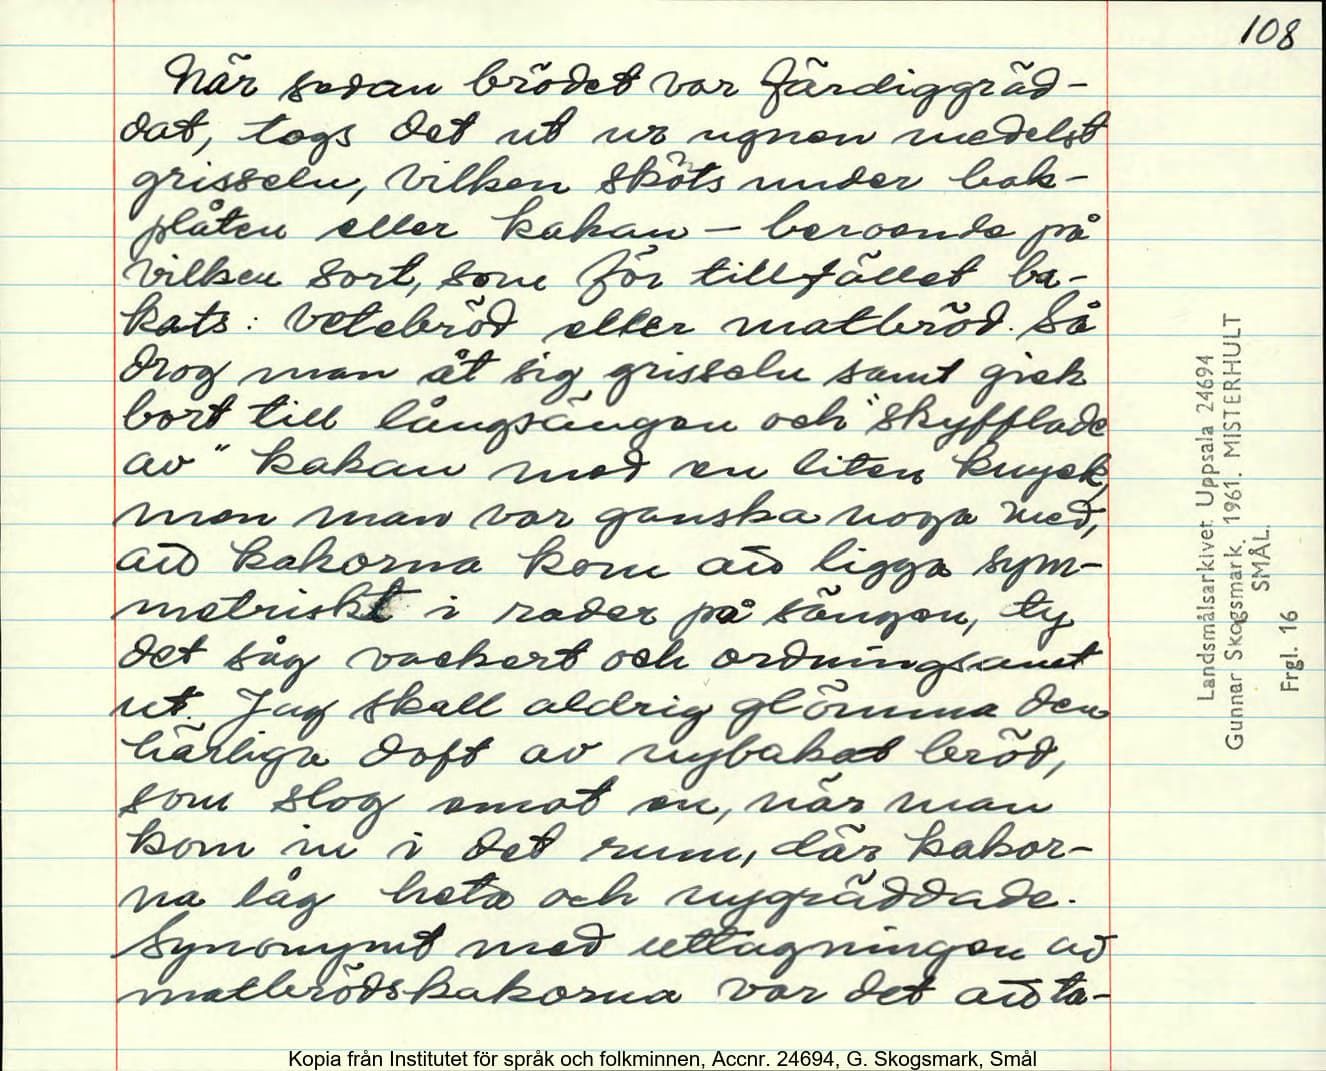 108
När sedan brödet var färdiggräd-
dat, togs det ut ur ugnen medelst
grisseln, vilken sköts under bak-
plåten eller kakan – beroende på
vilken sort, som för tillfället ba-
kats: vetebröd eller matbröd. Så
drog man åt sig grisseln samt gick
bort till långsängen och "skyfflade
av" kakan med en liten knyck,
men man var ganska noga med,
att kakorna kom att ligga sym-
metriskt i rader på sängen, ty
det såg vackert och ordningsamt
ut. Jag skall aldrig glömma den
härliga doft av nybakat bröd,
som slog emot en, när man
kom in i det rum, där kakor-
na låg heta och nygräddade.
Synonymt med uttagningen av
matbrödskakorna var det att ta-
Landsmålsarkivet Uppsala 24694
Gunnar Skogsmark. 1961. MISTERHULT
SMÅL.
Frgl. 16
Kopia från Institutet för språk och folkminnen, Accnr. 24694, G. Skogsmark, Smål